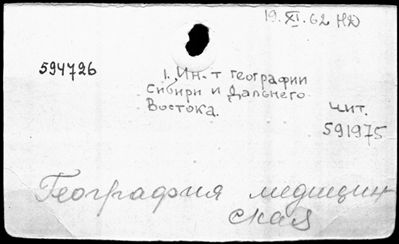 19.XI.62 НД
594726
1. Ин-т географии
Сибири и Дальнего
Востока.
Чит.
591975
География медицин
ская